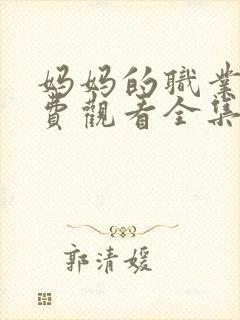 妈妈的職業
費觀看全集
郭清媛